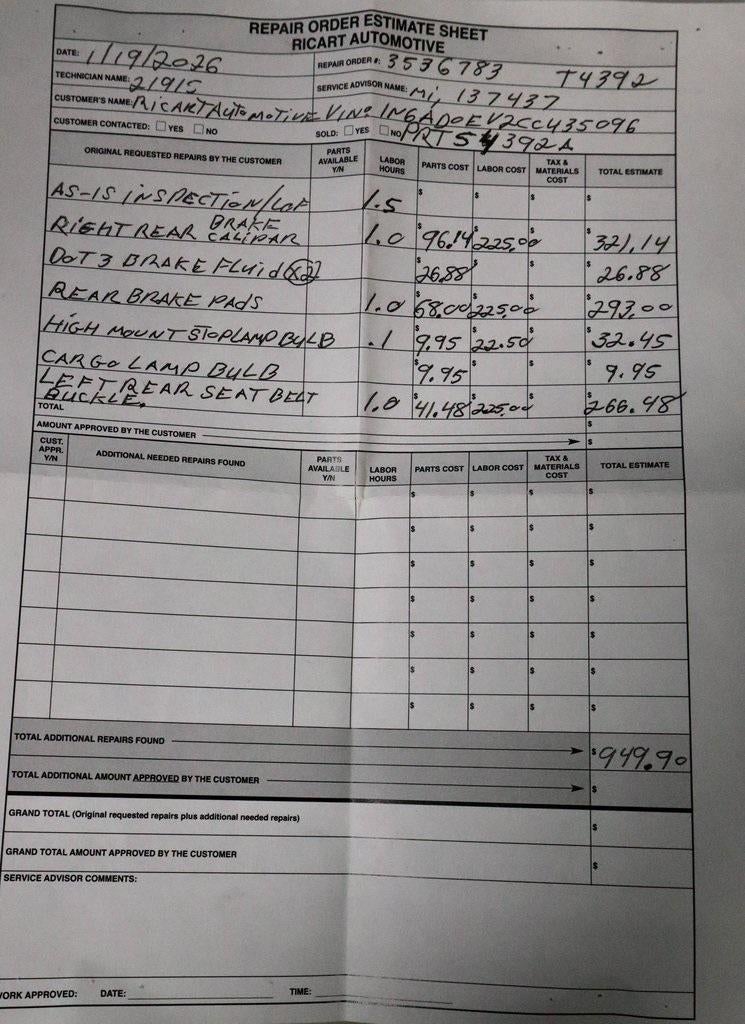 REPAIR ORDER ESTIMATE SHEET
RICART AUTOMOTIVE
DATE: 1/19/2026 REPAIR ORDER #: 3536783 T4392
TECHNICIAN NAME: 21915 SERVICE ADVISOR NAME: Mi, 137437
CUSTOMER'S NAME: RICART AUTOMOTIVE VIN: 1N6AD0EV2CC435096
CUSTOMER CONTACTED: YES NO SOLD: YES NO PRTS 4392A
ORIGINAL REQUESTED REPAIRS BY THE CUSTOMER PARTS AVAILABLE Y/N LABOR HOURS PARTS COST LABOR COST TAX & MATERIALS COST TOTAL ESTIMATE
AS-IS INSPECTION/LOF 1.5 $ $ $ $
RIGHT REAR BRAKE CALIPAR 1.0 $96.14 $225.00 $ $321.14
DOT 3 BRAKE FLUID (X2) $26.88 $ $ $26.88
REAR BRAKE PADS 1.0 $68.00 $225.00 $ $293.00
HIGH MOUNT STOPLAMP BULB .1 $9.95 $22.50 $ $32.45
CARGO LAMP BULB $9.95 $ $ $9.95
LEFT REAR SEAT BELT BUCKLE. 1.0 $41.48 $225.00 $ $266.48
TOTAL $
AMOUNT APPROVED BY THE CUSTOMER $
CUST. APPR. Y/N ADDITIONAL NEEDED REPAIRS FOUND PARTS AVAILABLE Y/N LABOR HOURS PARTS COST LABOR COST TAX & MATERIALS COST TOTAL ESTIMATE
$ $ $ $
$ $ $ $
$ $ $ $
$ $ $ $
$ $ $ $
$ $ $ $
$ $ $ $
TOTAL ADDITIONAL REPAIRS FOUND $949.90
TOTAL ADDITIONAL AMOUNT APPROVED BY THE CUSTOMER $
GRAND TOTAL (Original requested repairs plus additional needed repairs) $
GRAND TOTAL AMOUNT APPROVED BY THE CUSTOMER $
SERVICE ADVISOR COMMENTS:
WORK APPROVED: DATE: TIME: